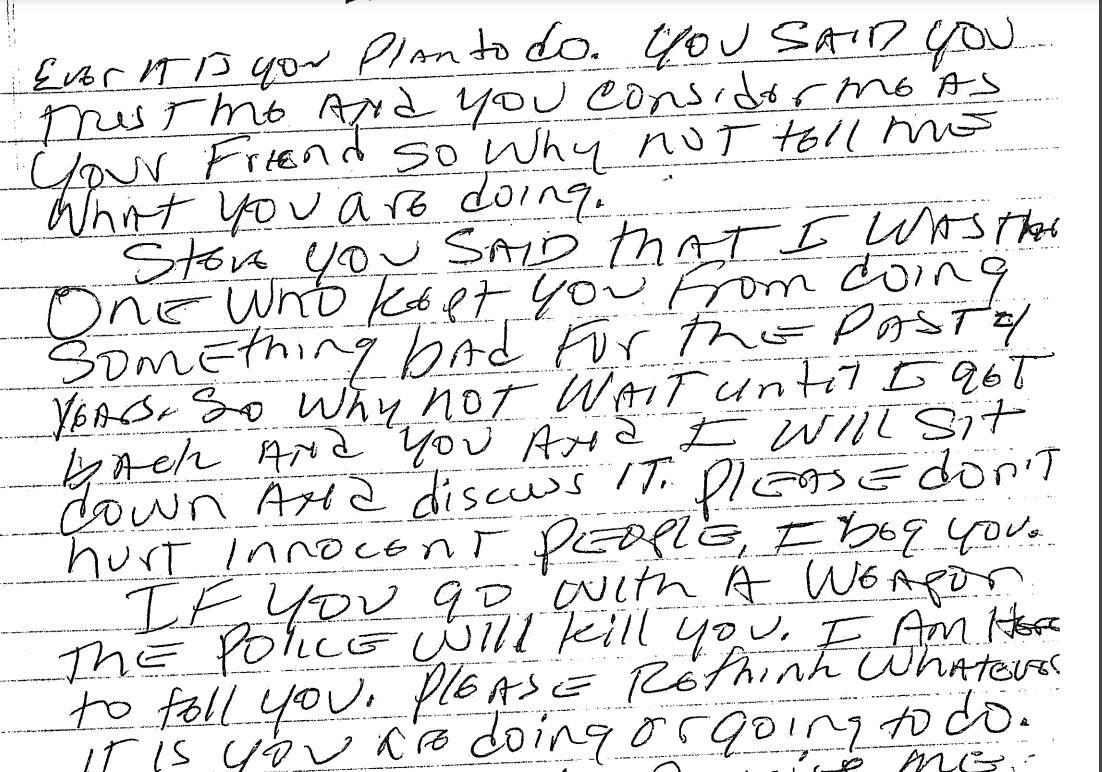 Ever it is your Plan to do. You SAID you
trust me And you consider me As
Your Friend so Why not tell me
What you are doing.
Steve you SAID that I WAS the
One who kept you from doing
Something bad for the Past 4
years. So Why not WAIT until I get
back And you And I will Sit
down And discuss IT. Please don't
hurt innocent People, I beg you.
IF you go with A Weapon
The Police will kill you. I Am Here
to tell you. Please Rethink Whatever
it is you are doing or going to do.
me